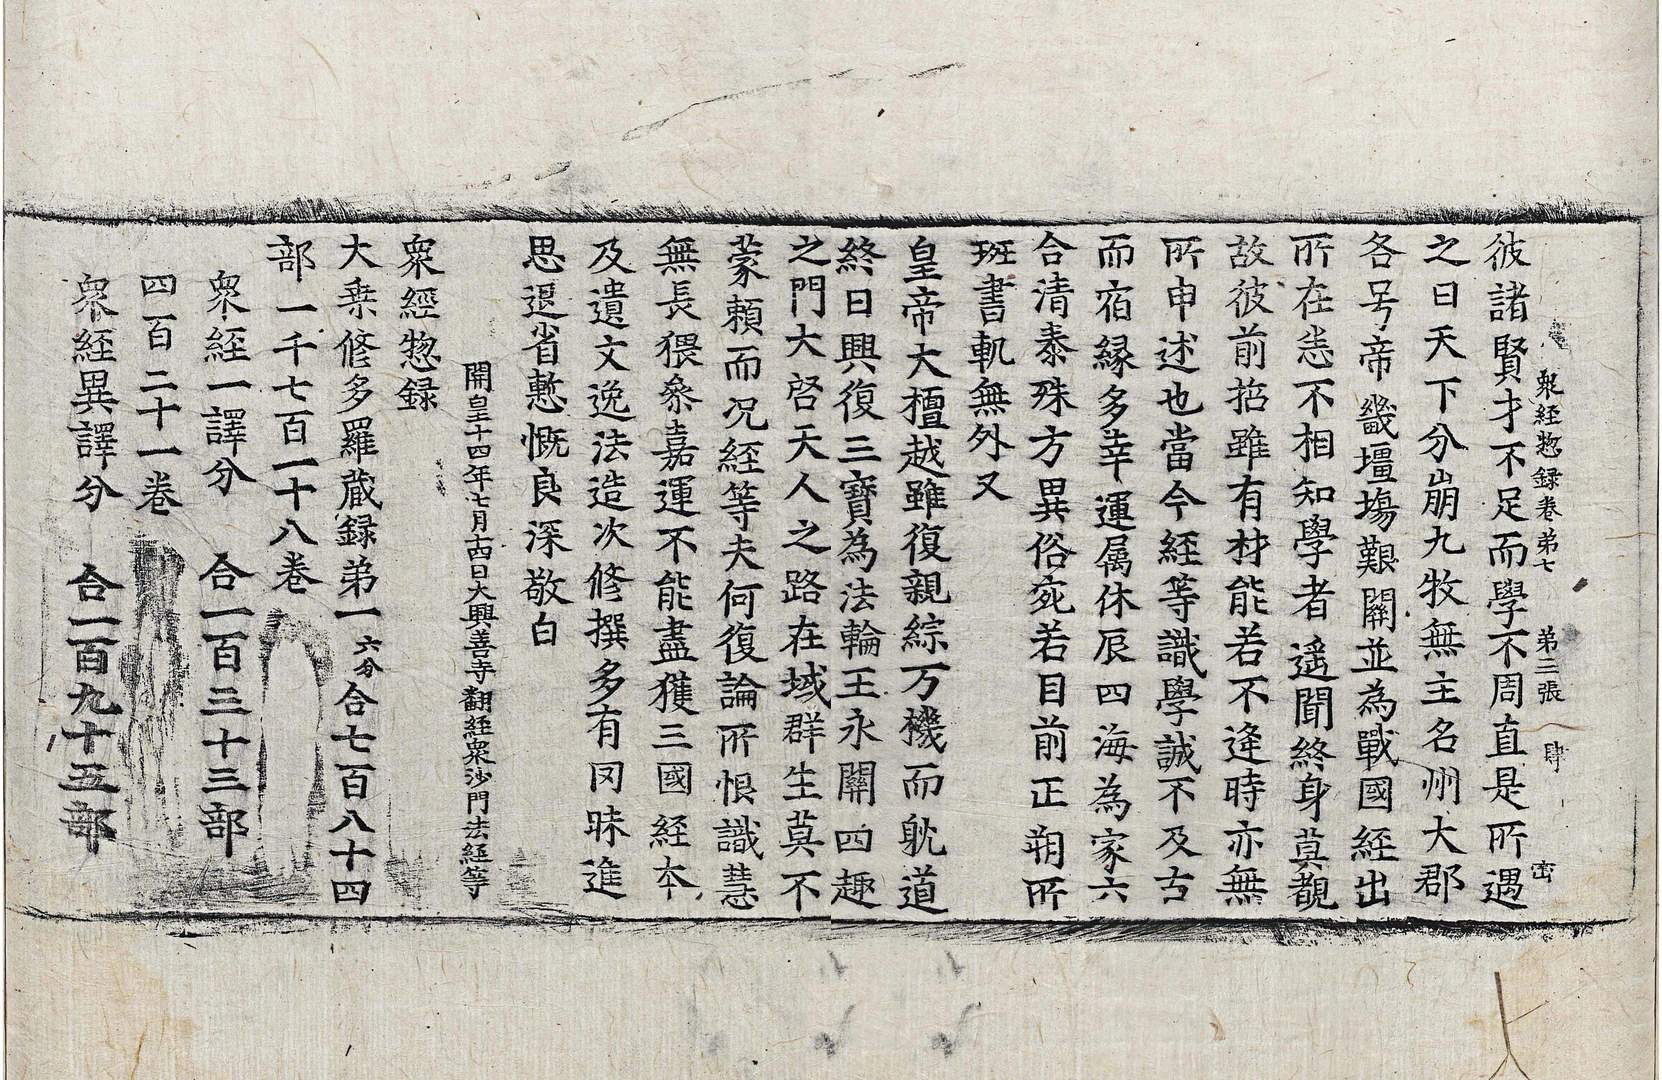 衆經惣録卷苐七 苐三張 肆 㐫
彼諸賢才不足而學不周直是所遇
之日天下分崩九牧無主名州大郡
各号帝畿壃埸艱關並為戰國經出
所在恙不相知學者遥聞終身莫覩
故彼前招雖有材能若不逢時亦無
所申述也當今經等識學誠不及古
而宿緣多幸運属休辰四海為家六
合清泰殊方異俗宛若目前正朔所
班書軌無外又
皇帝大檀越雖復親綜万機而躭道
終日興復三寶為法輪王永關四趣
之門大啓天人之路在域群生莫不
蒙頼而况經等夫何復論所恨識慧
無長猥叅嘉運不能盡獲三國經本
及遺文逸法造次修撰多有罔昧進
思退省慙慨良深敬白
開皇十四年七月十四日大興善寺翻經衆沙門法經等
衆經惣録
大乗修多羅蔵録苐一 六分 合七百八十四
部一千七百一十八卷
衆經一譯分 合一百三十三部
四百二十一卷
衆經異譯分 合一百九十五部